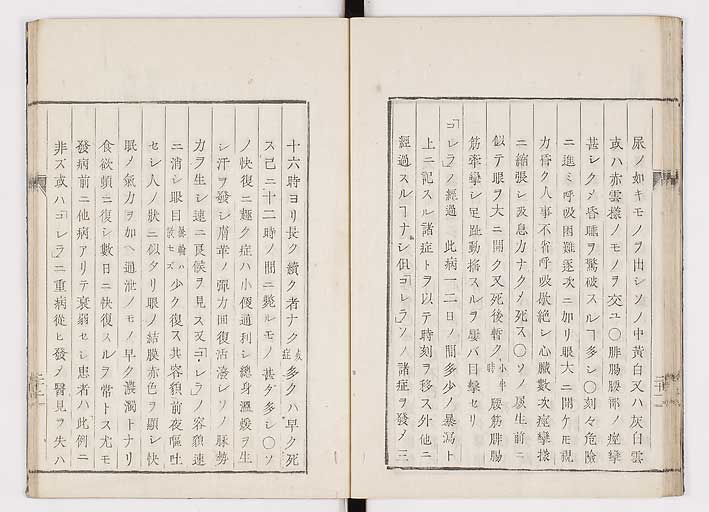 尿ノ如キモノヲ出シソノ中黄白又ハ灰白雲
或ハ赤雲様ノモノヲ交ユ〇腓腸腰部ノ痙攣
甚シク〆昏矇ヲ驚破スルヿ多シ〇刻々危險
ニ進ミ呼吸困難逐次ニ加リ眼大ニ開ケモ視
力昏ク人事不省呼吸歇絶シ心臓數次痙攣様
ニ縮張シ吸息力ナク〆死ス〇ソノ屍生前ニ
似テ眼ヲ大ニ開ク又死後暫ク小半時腰筋腓腸
筋牽攣シ足趾動揺スルヲ屢バ目擊セリ
「コレラ」ノ經過 此病一二日ノ間多少ノ暴瀉ト
上ニ記スル諸症トヲ以テ時刻ヲ移ス外他ニ
經過スルヿナシ但「コレラ」ソノ諸症ヲ發〆三
十六時ヨリ長ク續ク者ナク多クハ早ク死
ス已ニ十二時ノ間ニ斃ルモノ甚ダ多シ〇ソ
ノ快復ニ趣ク症ハ小便通利シ總身温煖ヲ生
シ汗ヲ發シ膚革ノ彈力回復活潑シソノ脉勢
力ヲ生シ速ニ良候ヲ見ス又「コレラ」ノ容貌速
ニ消シ眼目ハセズ少ク復ス其容貌前夜嘔吐
セシ人ノ狀ニ似タリ眼ノ結膜赤色ヲ顯シ快
眠ノ氣力ヲ加ヘ通泄ノモノ早ク濃濁トナリ
食欲頓ニ復シ數日ニ快復スルヲ常トス尤モ
發病前ニ他病アリテ衰弱セシ患者ハ此例ニ
非ズ或ハ「コレラ」ニ重病從ヒ發〆醫見ヲ失ハ